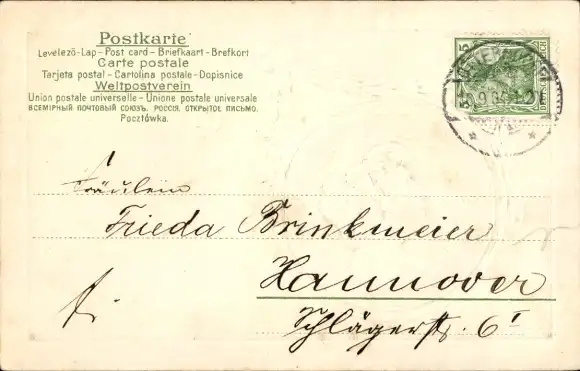 Postkarte
Levelező-Lap - Post card - Briefkaart - Brefkort
Carte postale
Tarjeta postal - Cartolina postale - Dopisnice
Weltpostverein
Union postale universelle - Unione postale universale
ВСЕМІРНЫЙ ПОЧТОВЫЙ СОЮЗЪ. РОССІЯ. ОТКРЫТОЕ ПИСЬМО.
Pocztówka.
Fräulein
Frieda Brinkmeier
Hannover
Schlägerstr. 6 I